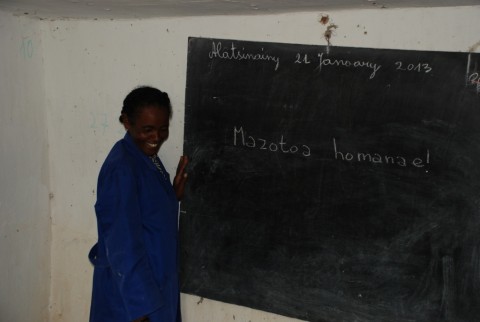 Alatsinainy 21 Janoary 2013
Mazotoa homanae!